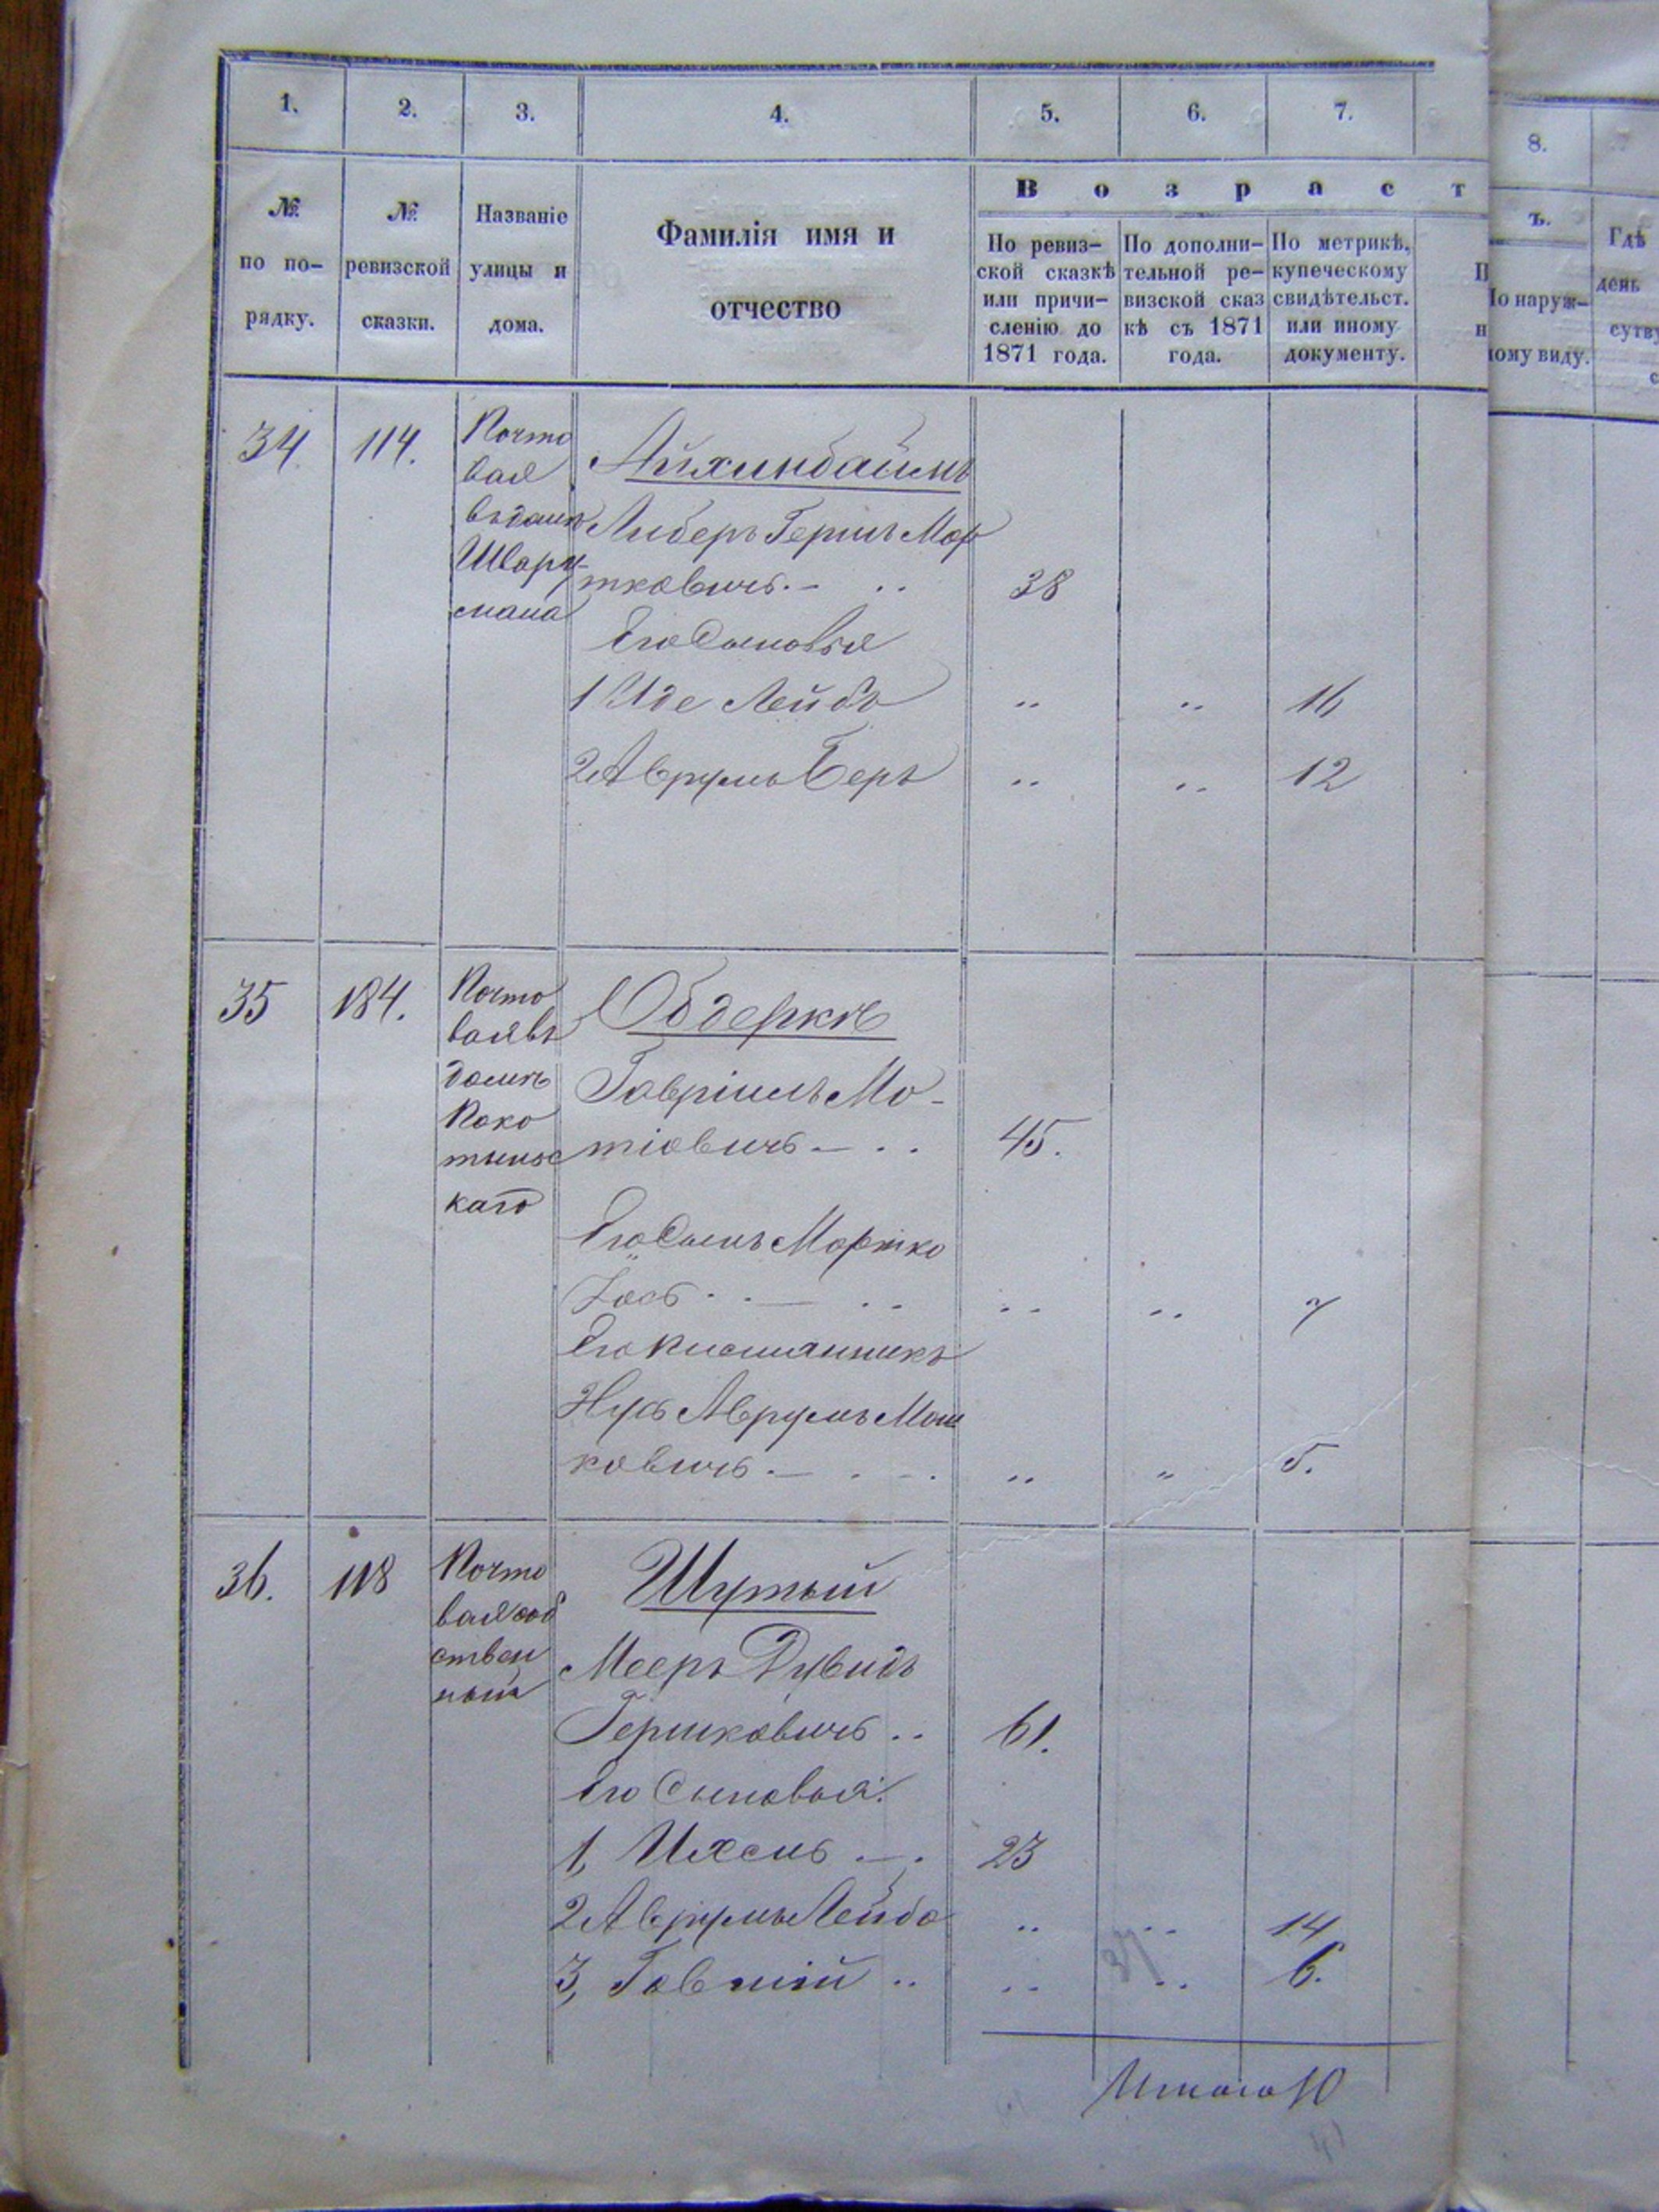 1. 2. 3. 4. 5. 6. 7.
8.
№ по по- рядку.
№ ревизской сказки.
Названіе улицы и дома.
Фамилія имя и
отчество
В о з р а с т
ъ.
По ревиз-
ской сказкѣ
или причи-
сленію до
1871 года.
По дополни-
тельной ре-
визской сказ
кѣ съ 1871
года.
По метрикѣ,
купеческому
свидѣтельст.
или иному
документу.
По наруж-
ному виду.
Гдѣ
день
34. 114.
Почто
вая
въ домѣ
Шварц-
мана
Айхинбаймъ
Либеръ Гершъ Мор
тковичъ. - .. 38
Его Сыновья
1 Иде Лейбъ .. .. 16
2 Аврумъ Беръ .. .. 12
35 184.
Почто
вая въ
домѣ
Поко
тинс
каго
Обдеркѣ
Гавріилъ Мо-
тіовичъ - .. 45.
Его Сынъ Мортко
Іось .. - .. .. .. 7
Его племянникъ
Нусъ Аврумъ Мош
ковичъ. - . - . .. .. 5.
36. 118
Почто
вая соб
ствен
ный
Шутый
Мееръ Дувидъ
Гершковичъ .. 61.
Его Сыновья:
1, Ихелъ . - . 23
2 Аврумъ Лейба .. .. 14
3, Гавшій .. .. .. 6.
Итого 10